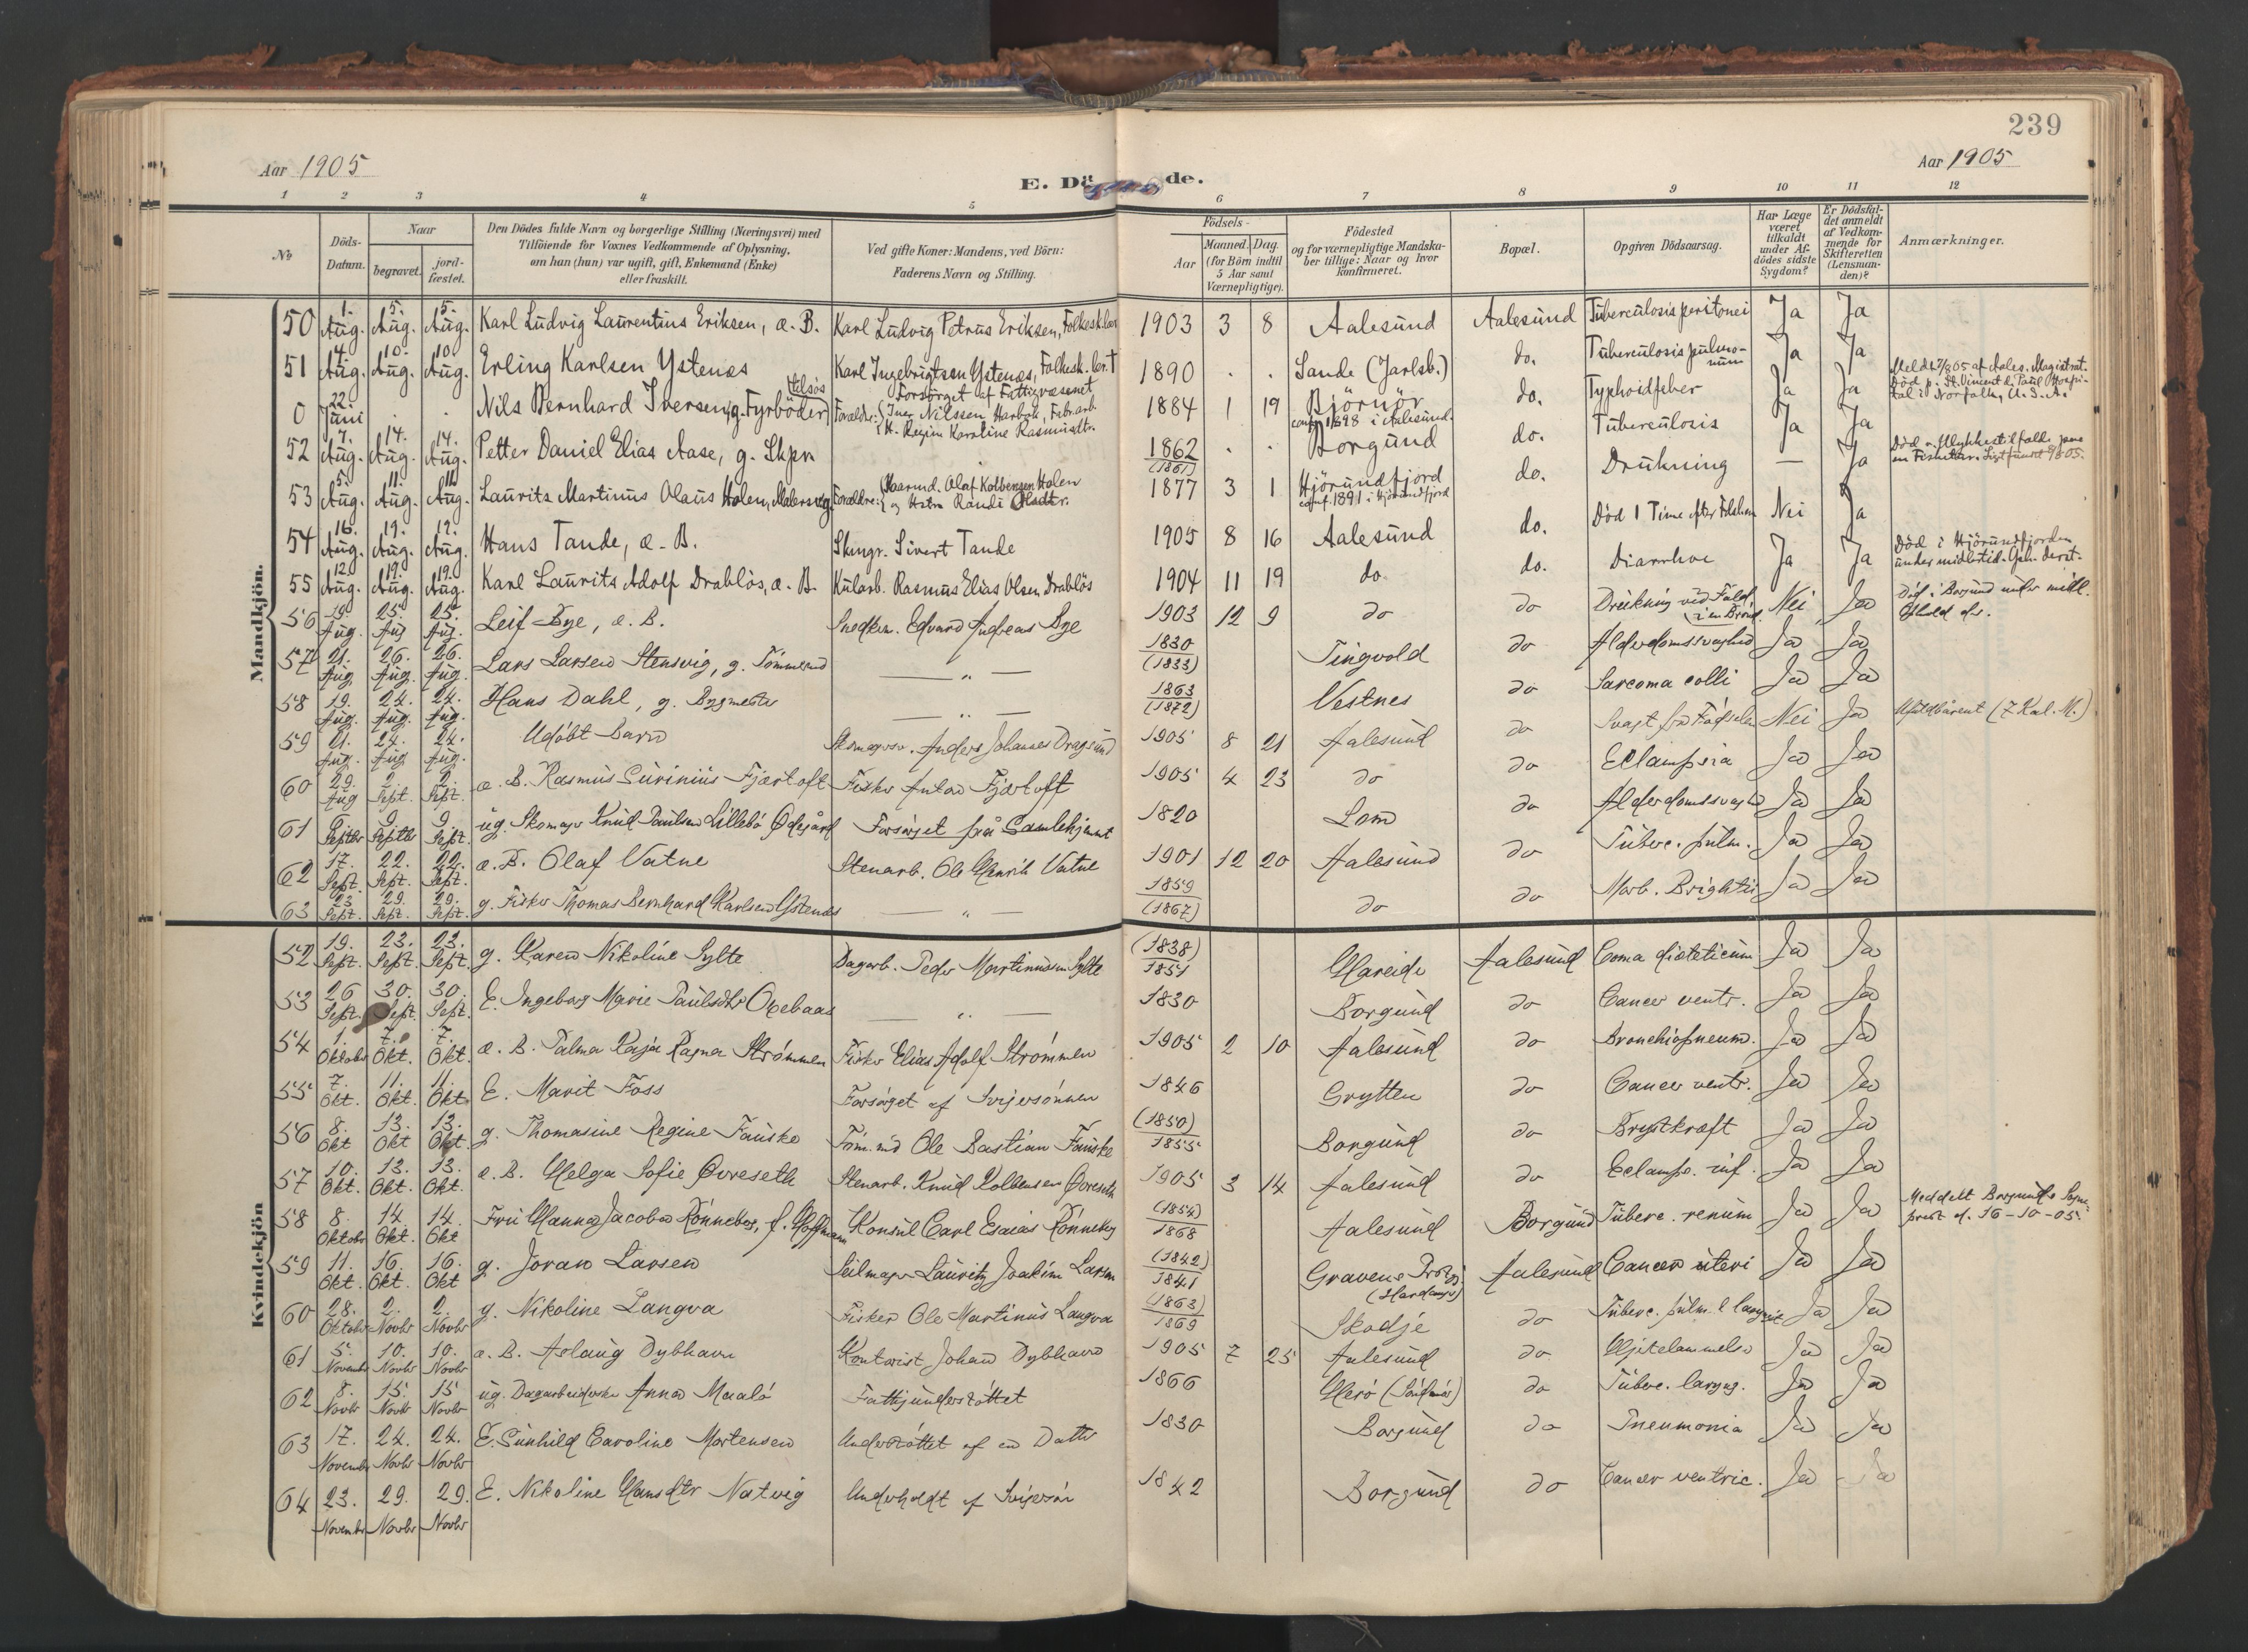 239
Aar 1905
Aar 1905
E. Dö de.
1 2 3 4 5 6 7 8 9 10 11 12
No
Döds-Datum.
Naar
begravet.
jord-fæstet.
Den Dödes fulde Navn og borgerlige Stilling (Næringsvei) med
Tilföiende for Voxnes Vedkommende af Oplysning,
om han (hun) var ugift, gift, Enkemand (Enke)
eller fraskilt.
Ved gifte Koner: Mandens, ved Börn:
Faderens Navn og Stilling.
Födsels-
Aar
Maaned. Dag.
(for Börn indtil
5 Aar samt
Værnepligtige).
Födested
og for værnepligtige Mandska-
ber tillige: Naar og hvor
konfirmeret.
Bopæl.
Opgiven Dödsaarsag.
Har Læge
været
tilkaldt
under Af-
dödes sidste
Sygdom?
Er Dödsfal-
det anmeldt
af Vedkom-
mende for
Skifteretten
(Lensman-
den)?
Anmærkninger.
Mandkjön.
50 1. Aug. 5. Aug. 5. Aug. Karl Ludvig Laurentius Eriksen, æ. B. Karl Ludvig Petrus Eriksen, 1903 3 8 Aalesund Aalesund Tuberculosis peritonei Ja Ja
51 4. Aug. 10. Aug. 10. Aug. Erling Karlsen Ystenæs Karl Ingebrigtsen Ystenæs, Forsörget af Fattigvæsenet 1890 . . Sande (Jarlsb.) do. Tuberculosis pulmo-num Ja Ja
0 22. Juni . . Nils Bernhard Iversen, g. Fyrböder Forældre: Iver Nilssen Fabr.arb. H. Regine Karoline Rasmusdtr. 1884 1 19 Björnör conf. 1898 i Aalesund do. Typhoidfeber Ja Ja Död p. St. Vincent d. Paul Hospi-tal i Norfolk, U.S.A.
52 7. Aug. 14. Aug. 14. Aug. Petter Daniel Elias Aase, g. Skpr. 1862 (1861) . . Borgund do. Tuberculosis Ja Ja
53 5. Aug. 11. Aug. 11. Aug. Laurits Martinus Olaus Holen, Forældre: Gaarmd. Olaf Kolbensen Holen og Hstru Randi 1877 3 1 Hjörundfjord conf. 1891 i Hjörundfjord do. Drukning — Ja
54 16. Aug. 19. Aug. 19. Aug. Hans Tande, æ. B. Skmgr. Sivert Tande 1905 8 16 Aalesund do. Död 1 Time efter Nei Ja
55 12. Aug. 19. Aug. 19. Aug. Karl Laurits Adolf Drabløs, æ. B. Kularb. Rasmus Elias Olsen Drabløs 1904 11 19 do. do. Diarrhoe Ja Ja Död i Hjörundfjorden under midlertid. Oph. derst.
56 19. Aug. 25. Aug. 25. Aug. Leif Bye, æ. B. Snedker. Edvard Andreas Bye 1903 12 9 do do Drukning ved Fald i en Brönd Nei Ja Död i Borgund under midl. Ophold der.
57 21. Aug. 26. Aug. 26. Aug. Lars Larsen Stensvig, g. Tömmermd — " — 1830 (1833) Tingvold do Alderdomssvaghed Ja Ja
58 19. Aug. 24. Aug. 24. Aug. Hans Dahl, g. Bygmester — " — 1863 (1872) Vestnes do Sarcoma colli Ja Ja
59 21. Aug. 24. Aug. 24. Aug. Udöbt Barn Skomagersv. Anders Johannes Dragsund 1905 8 21 Aalesund do Svagt fra Födselen Nei Ja Ufuldbaarent (7 Kal. M.)
60 29. Aug 2. Sept. 2. Sept. æ. B. Rasmus Surinius Fjærtoft Fisker Anton Fjærtoft 1905 4 23 do do Eclampsia Ja Ja
61 6. Septbr 9. Septbr 9. Sept. ug. Skomager Knud Paulsen Lillebö Ödegård Forsörget på Gamlehjemmet 1820 Lom do Alderdomssvaghed Ja Ja
62 17. Sept. 22. Sept. 22. Sept. æ. B. Olaf Vatne Stenarb. Ole Henrik Vatne 1901 12 20 Aalesund do Tuberc. pulm. Ja Ja
63 23 Sept. 29. Sept. 29. Sept. g. Fisker Thomas Bernhard Karlsen Ystenæs — " — 1859 (1867) do do Morb. Brightii Ja Ja
Kvindekjön
52 19. Sept. 23. Sept. 23. Sept. g. Karen Nikoline Sylte Dagarb. Peder Martinussen Sylte (1838) 1851 Hareide Aalesund Coma diæteticum Ja Ja
53 26 Sept. 30. Sept. 30. Sept. E. Ingeborg Marie Paulsdtr Oxebaas — " — 1830 Borgund do Cancer ventr. Ja Ja
54 1. Oktober 7. Okt. 7. Okt. æ. B. Palma Kaja Ragna Strömmen Fisker Elias Adolf Strömmen 1905 2 10 Aalesund do Bronchiopneum. Ja Ja
55 7. Okt. 11. Okt. 11. Okt. E. Marit Foss Forsörget af Svigersönnen 1846 Grytten do Cancer ventr. Ja Ja
56 8. Okt 13. Okt 13. Okt. g. Thomasine Regine Fauske Töm.md Ole Bastian Fauske (1850) 1855 Borgund do Brystkræft Ja Ja
57 10. Okt. 13. Okt. 13. Okt. æ. B. Helga Sofie Övreseth Stenarb. Knud Kolbensen Övreseth 1905 3 14 Aalesund do Eclamps. inf. Ja Ja
58 8. Oktober 14. Okt. 14. Okt Fru Hanna Jacoba Rönneberg, f. Hoffmann Konsul Carl Esaias Rönneberg (1854) 1868 Aalesund Borgund Tuberc. renum Ja Ja Meddelt Borgunds Sogne-prest d. 16-10-05.
59 11. Okt. 16. Okt. 16. Okt g. Joran Larsen Seilmager Lauritz Joakim Larsen (1842) 1841 Gravens Prgj. (Hardanger) Aalesund Cancer uteri Ja Ja
60 28. Oktober 2. Novbr 2. Novbr g. Nikoline Langva Fisker Ole Martinus Langva (1863) 1869 Skodje do Tuberc. pulm. & laryngit Ja Ja
61 5. Novembr 10. Novbr 10. Novbr æ. B. Aslaug Dybhavn Kontorist Johan Dybhavn 1905 7 25 Aalesund do Hjertelammelse Ja Ja
62 8. Novbr 15. Novbr 15 Novbr ug. Dagarbeiderske Anna Maalö Fattigunderstöttet 1866 Herö (Söndmör) do Tuberc. laryng. Ja Ja
63 17. Novembr 24. Novbr 24. Novbr E. Gunhild Caroline Mortensen Understöttet af en Datter 1830 Borgund do Pneumonia Ja Ja
64 23. Novembr 29. Novbr 29. Novbr E. Nikoline Hansdtr Natvig Underholdt af Svigersön 1842 Borgund do Cancer ventric. Ja Ja